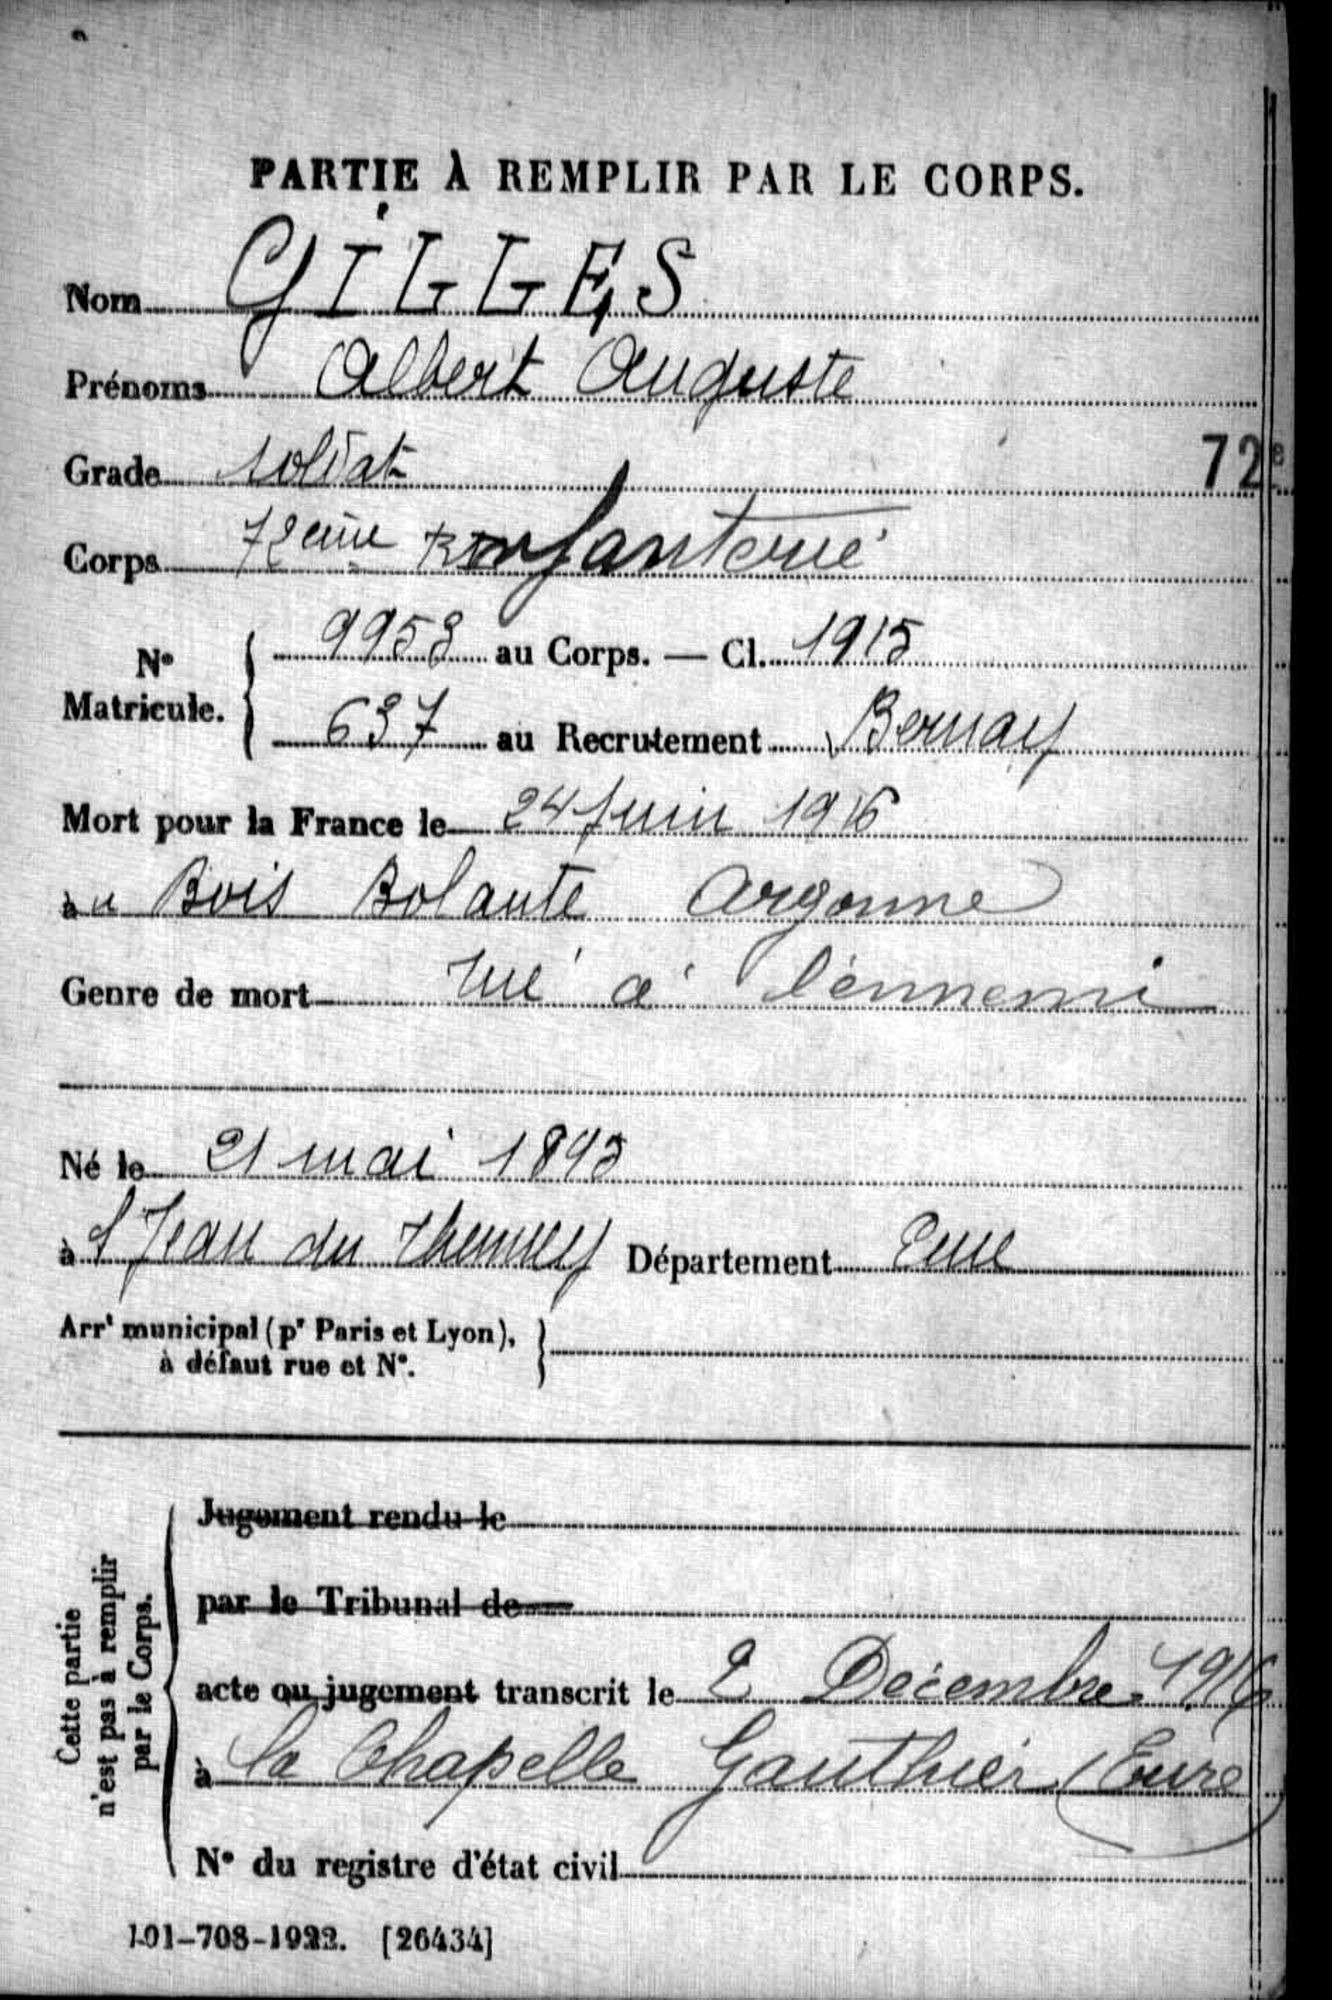 PARTIE À REMPLIR PAR LE CORPS.
Nom GILLES
Prénoms Albert Auguste
Grade soldat
72e
Corps 72ème Infanterie
N° Matricule. { 9953 au Corps. — Cl. 1915
637 au Recrutement Bernay
Mort pour la France le 24 Juin 1916
au Bois Bolante Argonne
Genre de mort Tué à l'ennemi
Né le 21 mai 1895
à St Jean du Thenney Département Eure
Arrt municipal (pr Paris et Lyon),
à défaut rue et N°.
Cette partie
n'est pas à remplir
par le Corps.
Jugement rendu le
par le Tribunal de
acte ou jugement transcrit le 2 Décembre 1916
à la Chapelle Gauthier (Eure)
N° du registre d'état civil
101-708-1922. [26434]